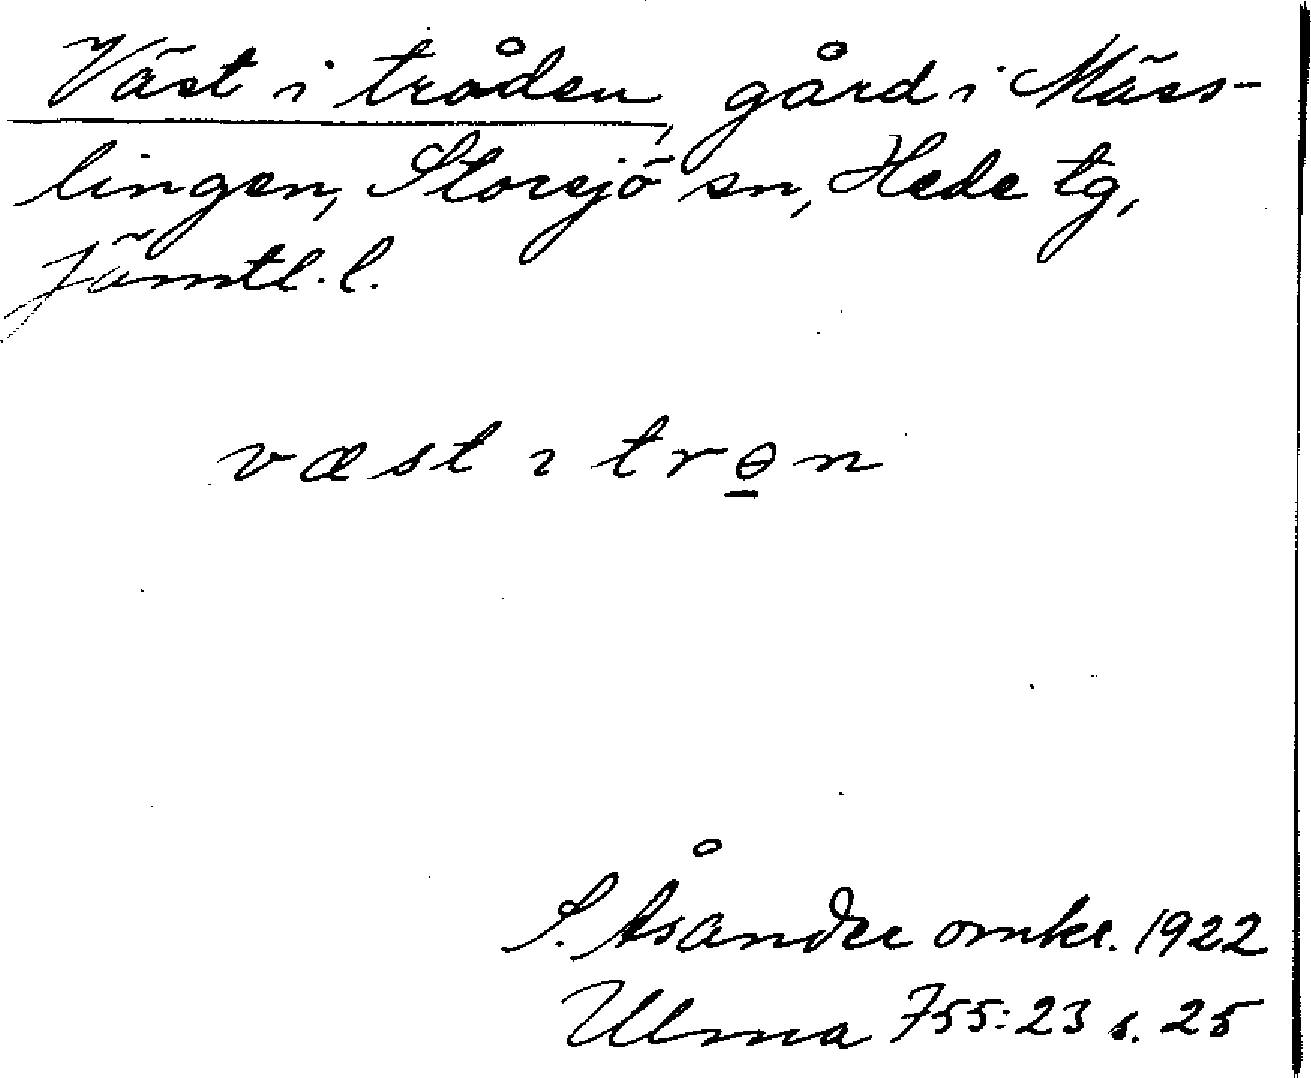 Väst i tråden, gård i Mäss-
lingen, Storsjö sn, Hede tg,
Jämtl. l.
væst ı trɵ̲n
S. Åsander omkr. 1922
Ulma 755:23 s. 25